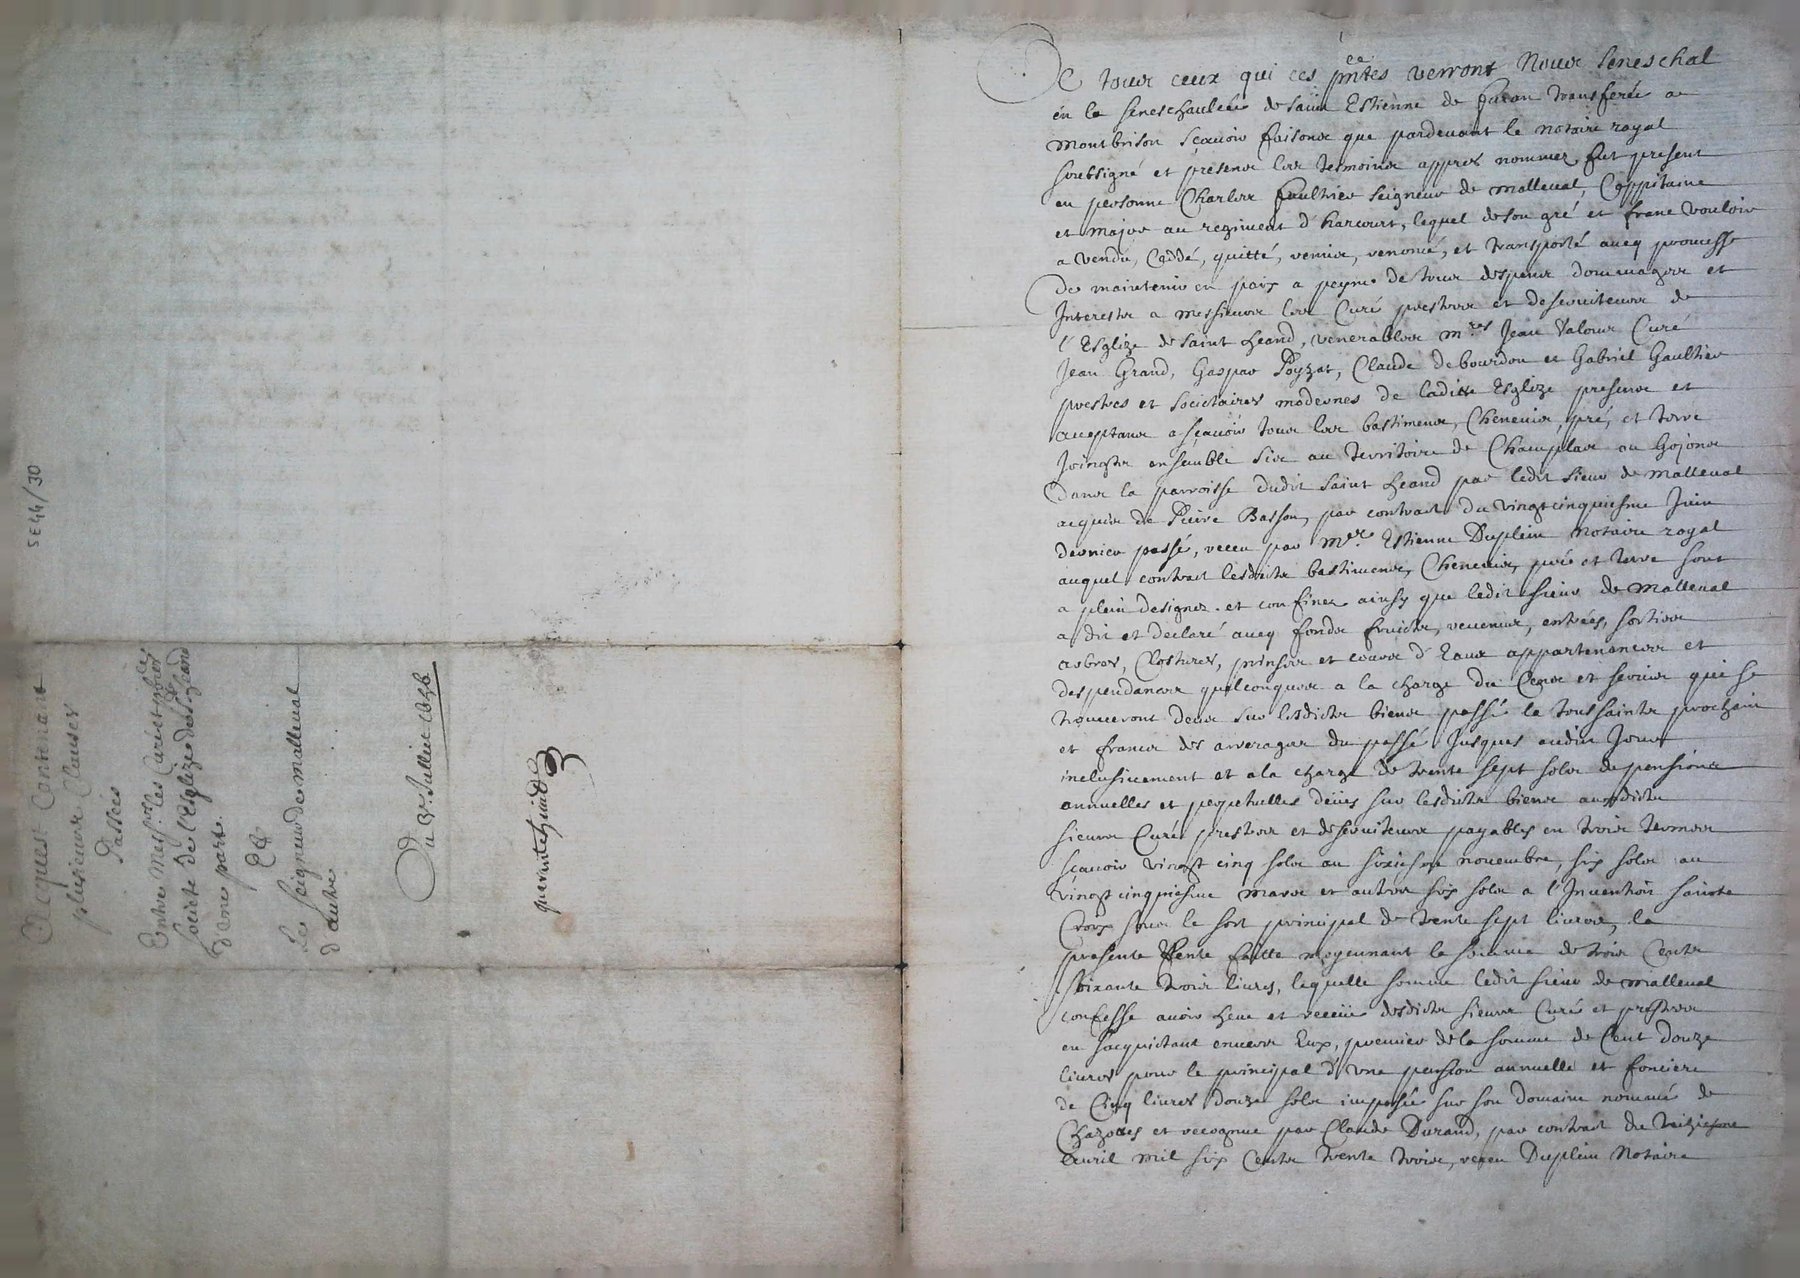 5E44/30
Acquest Contenant
plusieurs Clauses
Passées
Entre Mesrs. les Curé et
Societé de l'Esglize de St heand
d'une part.
Et
Le Seigneur de malleval
d'autre
Du 3e. Juillet 1636
quarantehuict
A tous ceux qui ces pntes verront Nous Seneschal
en la seneschaulcée de Saint Estienne de furan transferée a
Montbrison sçavoir faisons que pardevant le notaire royal
soubsigné et présens les tesmoins appres nommez fut present
en personne Charles faultrier Seigneur de malleval, Cappitaine
et Major au regiment d'harcourt, lequel de son gré et franc vouloir
a vendu, Ceddé, quitté, remis, renoncé, et transporté avecq promesse
de maintenir en paix a peyne de tous despens dommages et
Interestz a Messieurs les Curé prestres et deserviteurs de
l'Esglize de Saint heand, venerables mres Jean Valours Curé
Jean Grand, Gaspar Poyzat, Claude debourdon et Gabriel Gaultier
prestres et societaires modernes de laditte Esglize presens et
acceptans a sçavoir tous les bastimens, Chenevier, pré, et terre
Joinctz ensemble sis au territoire de Champlas ou Gojons
dans la parroisse dudit Saint heand par ledit sieur de malleval
acquis de Pierre Basson, par contract du vingtcinquiesme Juin
dernier passé, receu par Mre Estienne Duplein Notaire royal
auquel contract lesdits bastimens, Chenevier, pré et terre sont
a plein designez et confinez ainsy que ledit sieur de Malleval
a dit et declaré avecq fondz fruictz, revenus, entrées, sorties
arbres, Clostures, prinses et cours d'Eaux appartenances et
despendances quelconques a la charge du Cens et servis qui se
trouveront deus sur lesdictz biens passé la toussaintz prochain
et francz des arrerages du passé Jusques audit Jour
inclusivement et a la charge de trente sept solz de pensions
annuelles et perpetuelles deües sur lesdictz biens ausdictz
sieurs Curé prestres et deserviteurs payables en trois termes
sçavoir vingt cinq solz au sixiesme novembre, six solz au
vingtcinquiesme mars et autres six solz a l'Invention saincte
Croix sous le sort principal de trente sept livres, la
presente Vente faitte moyennant la somme de trois Centz
soixante trois livres, laquelle somme ledit sieur de malleval
confesse avoir heue et receüe desdictz sieurs Curé et prestres
en sacquictant envers Eux, premier de la somme de Cent douze
livres pour le principal d'une pension annuelle et fonciere
de Cinq livres douze solz imposée sur son domaine nommé de
Chazottes et recognue par Claude Durand, par contract du treiziesme
Avril mil six Centz trente trois, receu Duplein Notaire